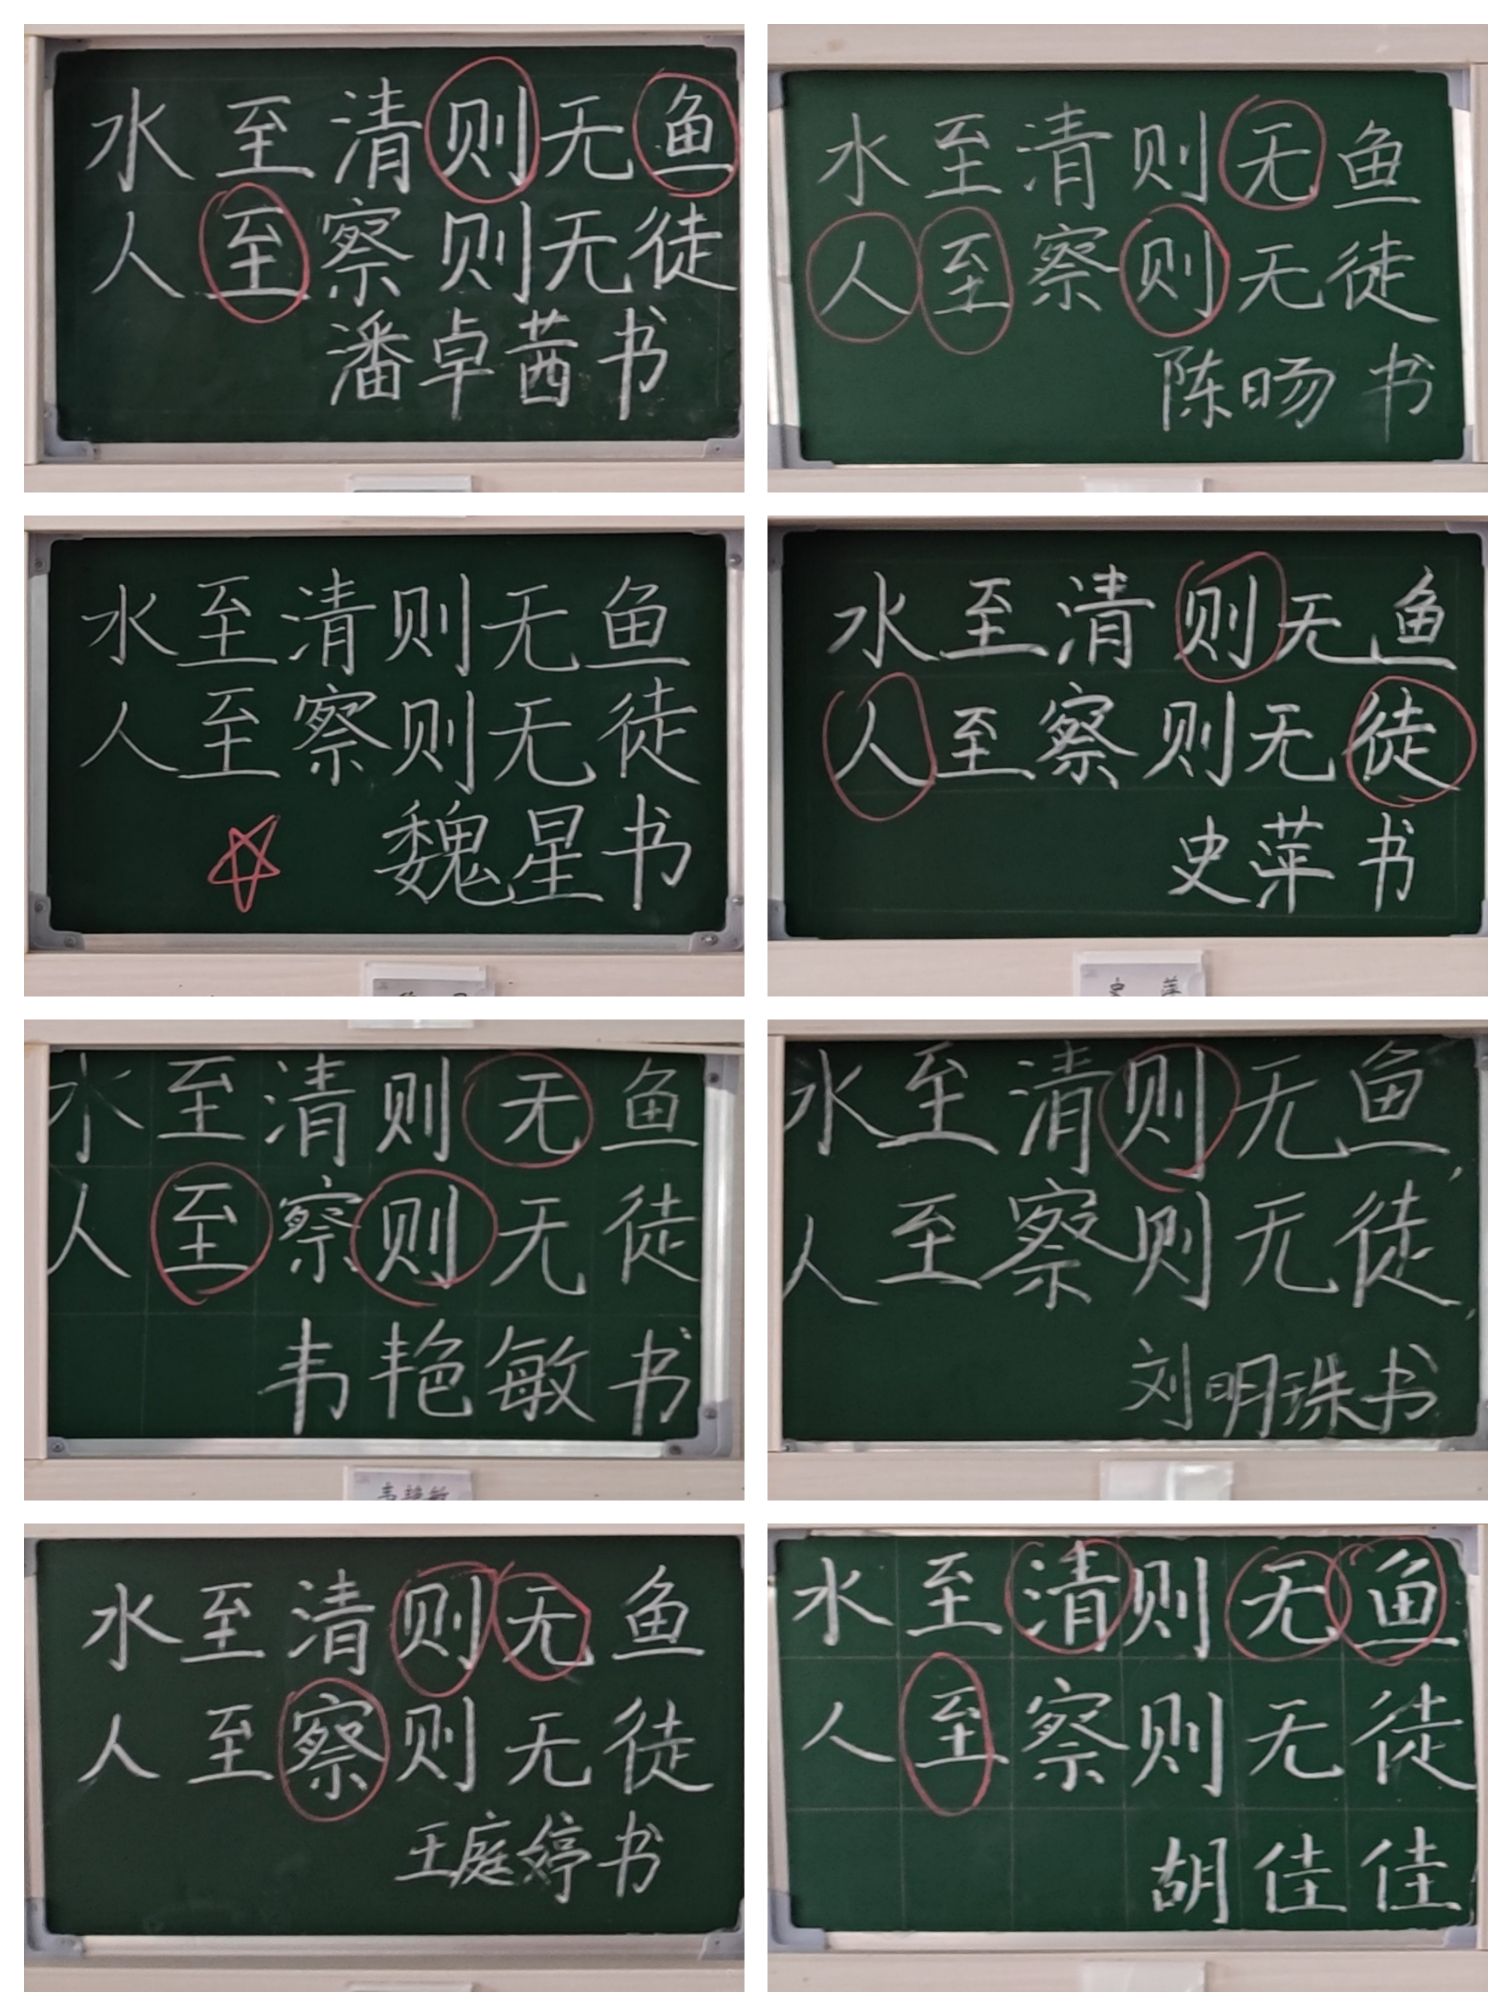 水至清则无鱼
人至察则无徒
潘卓茜书
水至清则无鱼
人至察则无徒
陈旸书
水至清则无鱼
人至察则无徒
魏星书
水至清则无鱼
人至察则无徒
史萍书
史萍
水至清则无鱼
人至察则无徒
韦艳敏书
韦艳敏
水至清则无鱼,
人至察则无徒,
刘明珠书
水至清则无鱼
人至察则无徒
王庭婷书
水至清则无鱼
人至察则无徒
胡佳佳